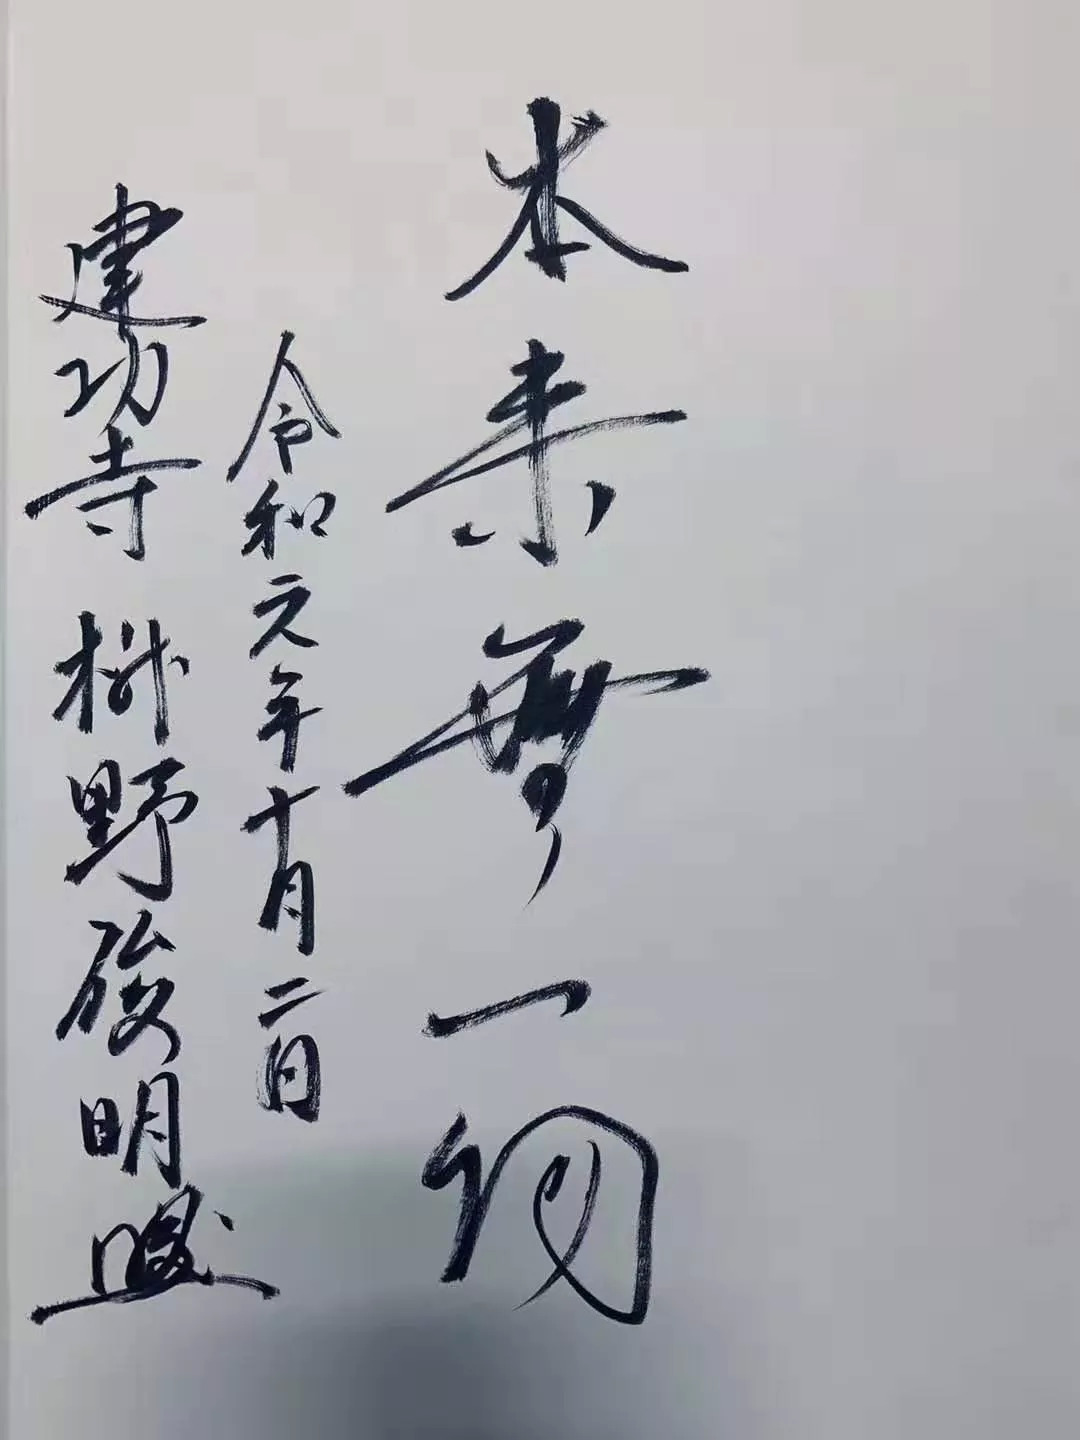 本来無一物
令和元年十月二日
建功寺 枡野俊明